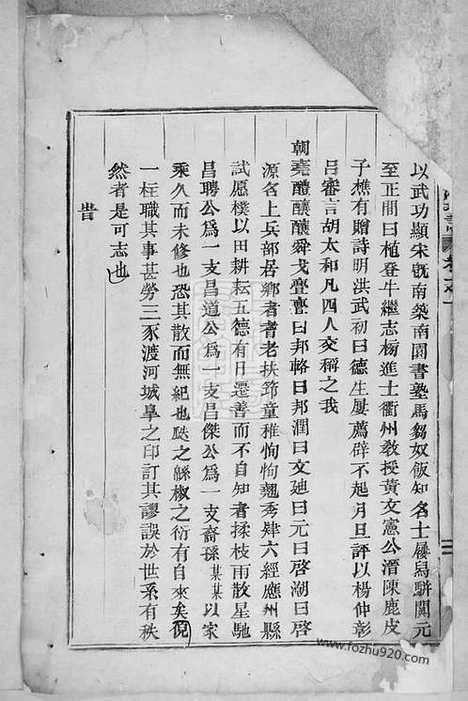 以武功顯宋旣南築南園書塾馬芻奴飯知名士屨舄駢闐元
至正間曰植登牛繼志榜進士衢州敎授黃文憲公溍陳鹿皮
子樵有贈詩明洪武初曰德生屢薦辟不起月旦評以楊仲彰
呂審言胡太和凡四人交稱之我
朝雍醴釀釀舜戈亹亹曰邦輅曰邦潤曰文廸曰元曰啓潮曰啓
源名上兵部居鄉者耆老扶筇童稚恂恂翹秀肄六經應州縣
試愿樸以田耕耘五德有日遷善而不自知者揉枝雨散星馳
昌聘公爲一支昌道公爲一支昌傑公爲一支裔孫某某以家
乘久而未修也恐其散而無紀也瓞之緜椒之衍有自來矣倪
一枉職其事甚勞三豕渡河城皐之印訂其謬誤於世系有秩
然者是可志也
昔
www.fozhu920.com